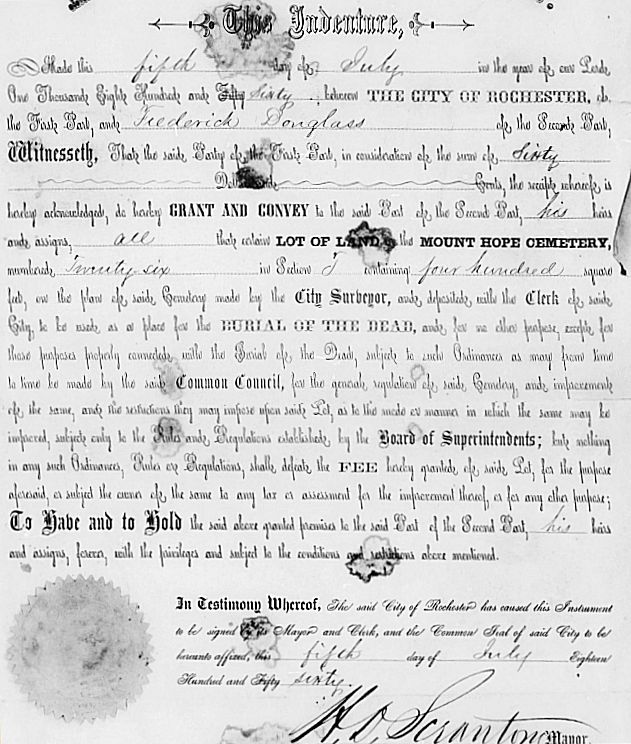 This Indenture,
Made this fifth day of July in the year of our Lord
One Thousand Eight Hundred and Fifty Sixty, between THE CITY OF ROCHESTER, of
the First Part, and Frederick Douglass of the Second Part,
Witnesseth, That the said Party of the First Part, in consideration of the sum of Sixty
Dollars and Cents, the receipt whereof is
hereby acknowledged, do hereby GRANT AND CONVEY to the said Part of the Second Part, his heirs
and assigns, all that certain LOT OF LAND, in the MOUNT HOPE CEMETERY,
numbered Twenty six in Section T containing four hundred square
feet, on the plan of said Cemetery made by the City Surveyor, and deposited with the Clerk of said
City, to be used as a place for the BURIAL OF THE DEAD, and for no other purpose, except for
those purposes properly connected with the Burial of the Dead, subject to such Ordinances as may from time
to time be made by the said Common Council, for the general regulation of said Cemetery, and improvement
of the same, and the restrictions they may impose upon said Lot, as to the mode or manner in which the same may be
improved, subject only to the Rules and Regulations established by the Board of Superintendents; but nothing
in any such Ordinances, Rules or Regulations, shall defeat the FEE hereby granted of said Lot, for the purpose
aforesaid, or subject the owner of the same to any tax or assessment for the improvement thereof, or for any other purpose;
To Have and to Hold the said above granted premises to the said Part of the Second Part, his heirs
and assigns, forever, with the privileges and subject to the conditions and restrictions above mentioned.
In Testimony Whereof, The said City of Rochester has caused this Instrument
to be signed by its Mayor and Clerk, and the Common Seal of said City to be
hereunto affixed, this fifth day of July Eighteen
Hundred and Fifty sixty.
H. D. Scrantom Mayor.